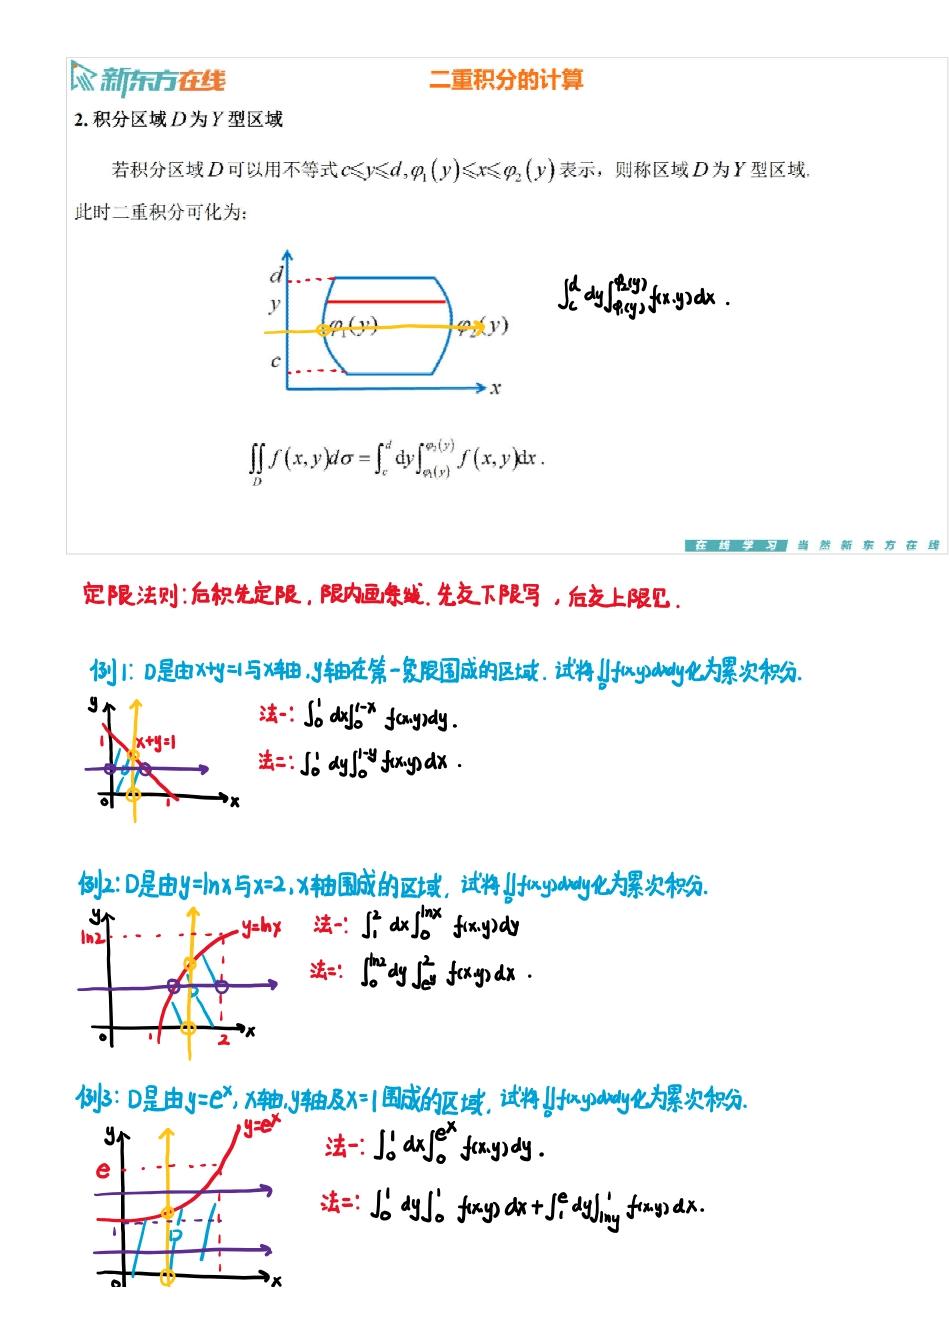 新东方在线
二重积分的计算
2. 积分区域 D 为 Y 型区域
若积分区域 D 可以用不等式 c≤y≤d, φ₁(y)≤x≤φ₂(y) 表示，则称区域 D 为 Y 型区域.
此时二重积分可化为:
d
y
φ₁(y) φ₂(y)
c
x
∫_c^d dy∫_{φ₁(y)}^{φ₂(y)} f(x,y)dx .
∬_D f(x,y)dσ = ∫_c^d dy∫_{φ₁(y)}^{φ₂(y)} f(x,y)dx .
在线学习 当然新东方在线
定限法则: 后积先定限, 限内画条线. 先交下限写, 后交上限见.
例1: D是由x+y=1与x轴,y轴在第一象限围成的区域. 试将∬_D f(x,y)dxdy化为累次积分.
y
1
x+y=1
D
0
1
x
法一: ∫_0^1 dx∫_0^{1-x} f(x,y)dy.
法二: ∫_0^1 dy∫_0^{1-y} f(x,y)dx .
例2: D是由y=lnx与x=2, x轴围成的区域, 试将∬_D f(x,y)dxdy化为累次积分.
y
ln2
y=lnx
D
0
1
2
x
法一: ∫_1^2 dx∫_0^{lnx} f(x,y)dy
法二: ∫_0^{ln2} dy∫_{e^y}^2 f(x,y)dx .
例3: D是由y=e^x, x轴,y轴及x=1围成的区域, 试将∬_D f(x,y)dxdy化为累次积分.
y
y=e^x
e
1
D
0
x
法一: ∫_0^1 dx∫_0^{e^x} f(x,y)dy .
法二: ∫_0^1 dy∫_0^1 f(x,y)dx + ∫_1^e dy∫_{lny}^1 f(x,y)dx.